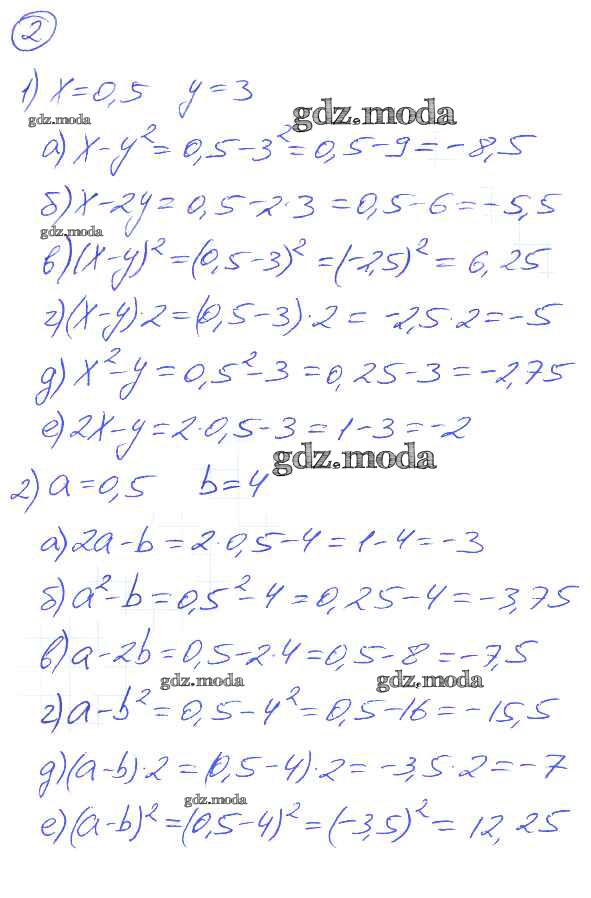 2
1) x=0,5 y=3
gdz.moda
gdz.moda
а) x-y²=0,5-3²=0,5-9=-8,5
б) x-2y=0,5-2·3=0,5-6=-5,5
gdz.moda
в) (x-y)²=(0,5-3)²=(-2,5)²=6,25
г) (x-y)·2=(0,5-3)·2=-2,5·2=-5
д) x²-y=0,5²-3=0,25-3=-2,75
е) 2x-y=2·0,5-3=1-3=-2
gdz.moda
2) a=0,5 b=4
а) 2a-b=2·0,5-4=1-4=-3
б) a²-b=0,5²-4=0,25-4=-3,75
в) a-2b=0,5-2·4=0,5-8=-7,5
gdz.moda gdz.moda
г) a-b²=0,5-4²=0,5-16=-15,5
д) (a-b)·2=(0,5-4)·2=-3,5·2=-7
gdz.moda
е) (a-b)²=(0,5-4)²=(-3,5)²=12,25